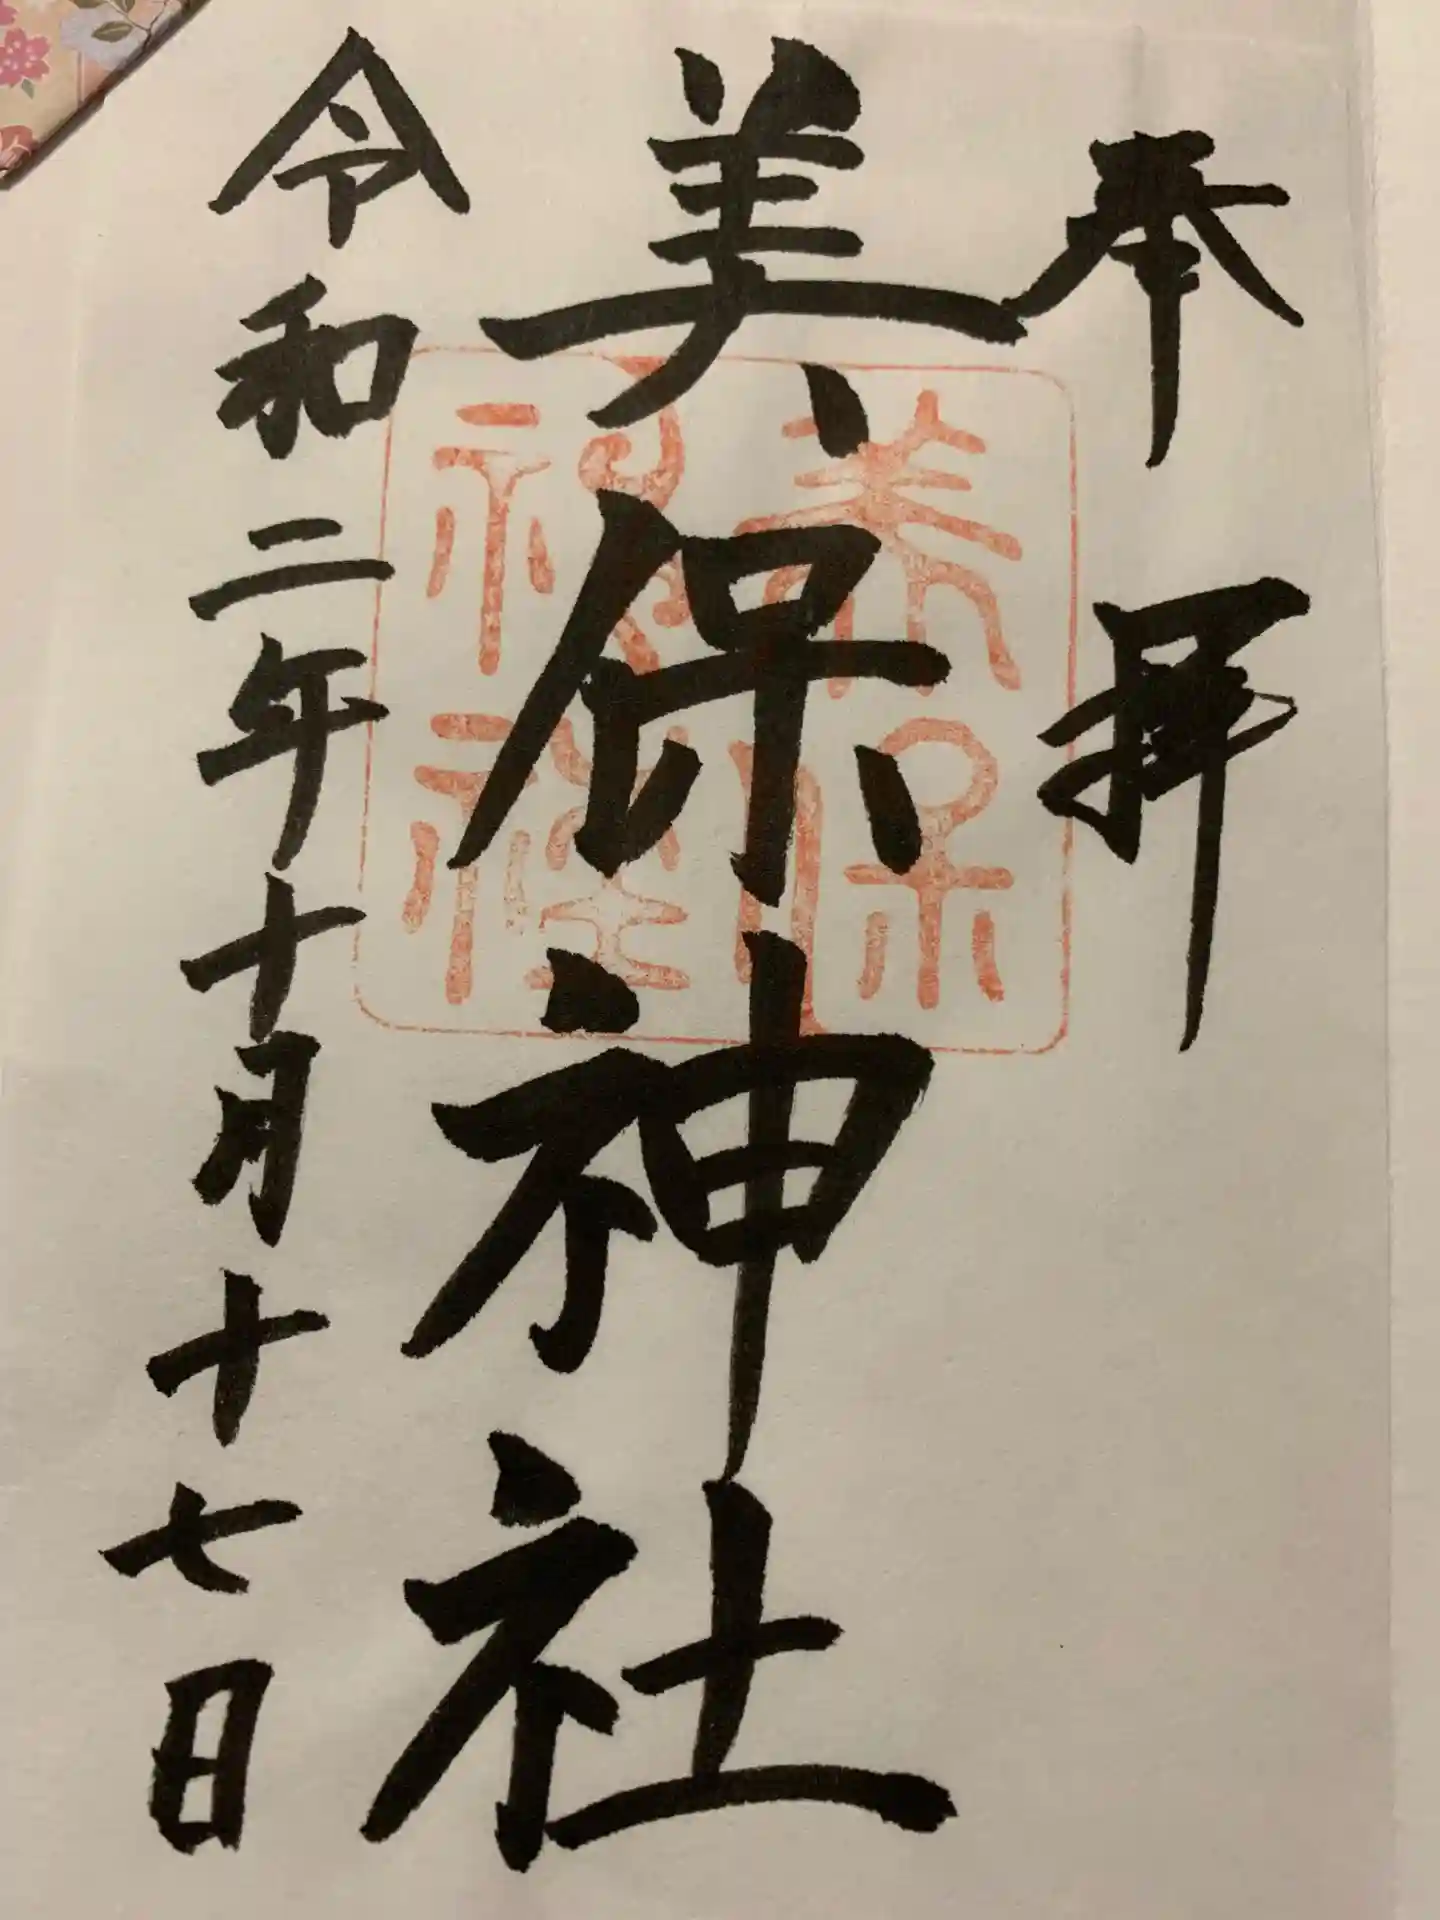 奉拝
美保神社
令和二年十月十七日
美保神社